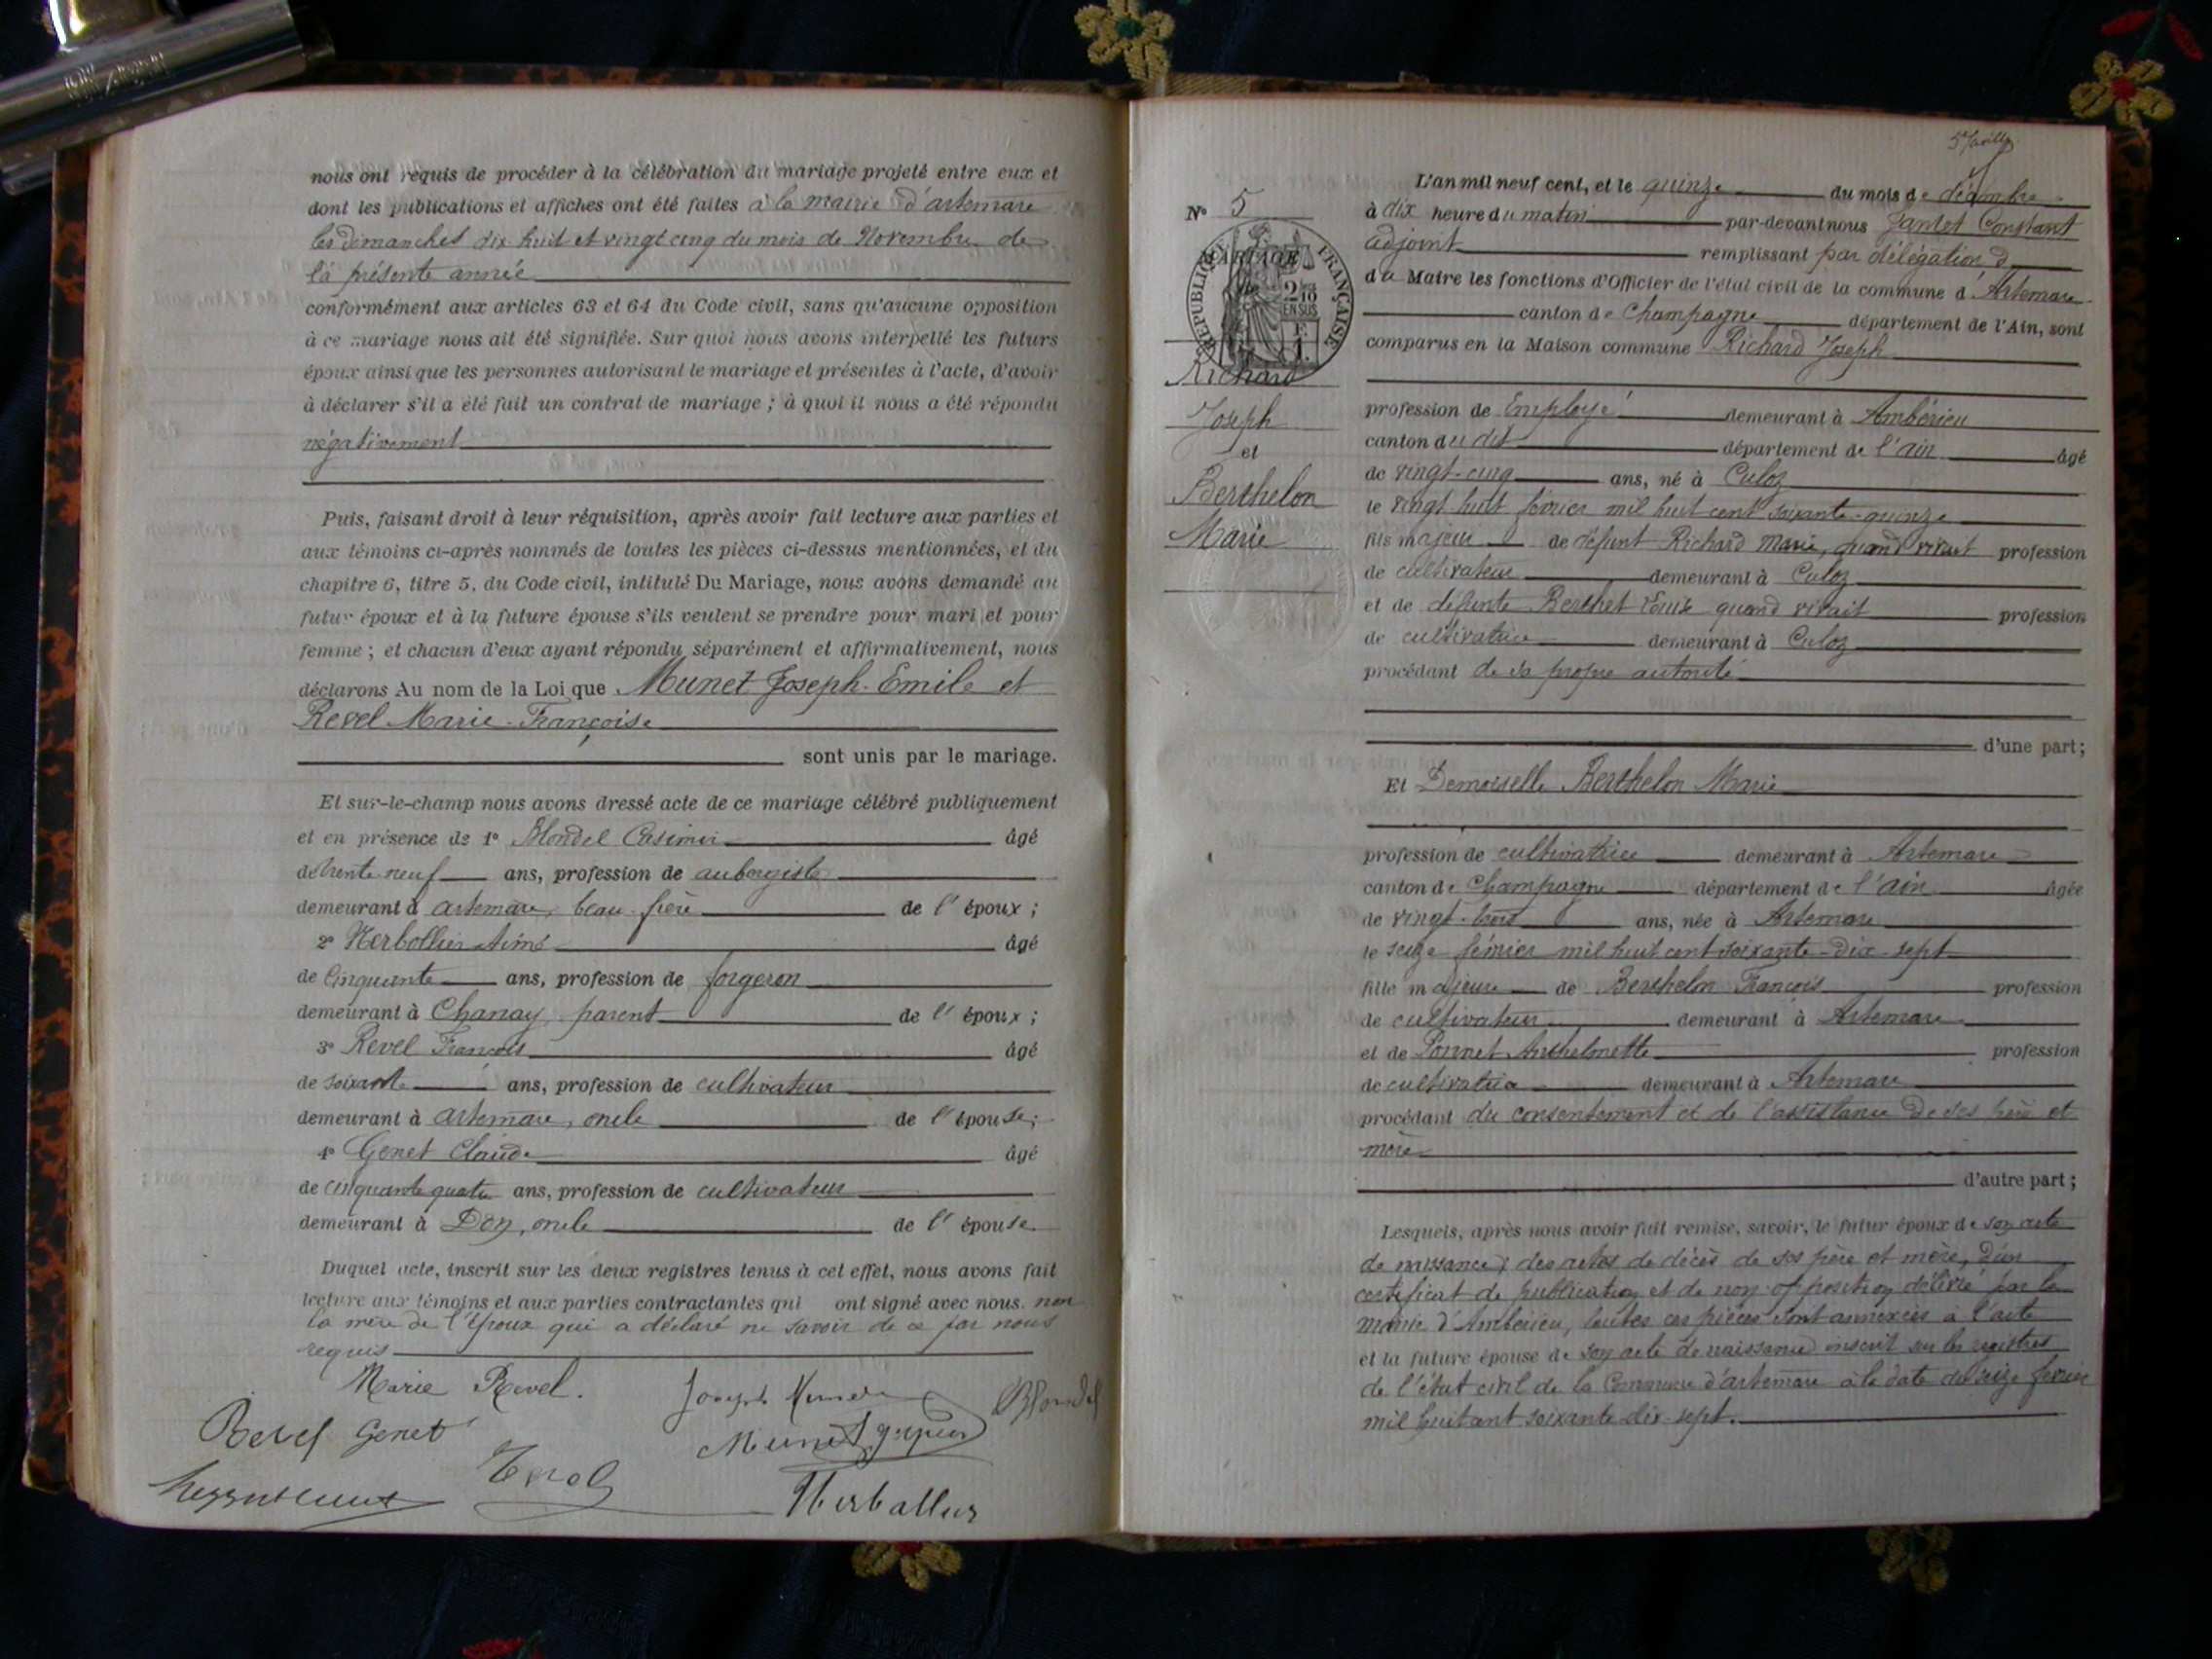 nous ont requis de procéder à la célébration du mariage projeté entre eux et
dont les publications et affiches ont été faites à la mairie d'artemare
les dimanches dix huit et vingt cinq du mois de Novembre de
la présente année
conformément aux articles 63 et 64 du Code civil, sans qu'aucune opposition
à ce mariage nous ait été signifiée. Sur quoi nous avons interpellé les futurs
époux ainsi que les personnes autorisant le mariage et présentes à l'acte, d'avoir
à déclarer s'il a été fait un contrat de mariage ; à quoi il nous a été répondu
négativement
Puis, faisant droit à leur réquisition, après avoir fait lecture aux parties et
aux témoins ci-après nommés de toutes les pièces ci-dessus mentionnées, et du
chapitre 6, titre 5, du Code civil, intitulé Du Mariage, nous avons demandé au
futur époux et à la future épouse s'ils veulent se prendre pour mari et pour
femme ; et chacun d'eux ayant répondu séparément et affirmativement, nous
déclarons Au nom de la Loi que Munet Joseph-Emile et
Revel Marie-Françoise
sont unis par le mariage.
Et sur-le-champ nous avons dressé acte de ce mariage célébré publiquement
et en présence de 1° Blondel Casimir âgé
de trente neuf ans, profession de aubergiste
demeurant à artemare, beau-frère de l'époux ;
2° Herbollier Aimé âgé
de Cinquante ans, profession de forgeron
demeurant à Chanay, parent de l'époux ;
3° Revel François âgé
de soixante ans, profession de cultivateur
demeurant à artemare, oncle de l'épouse ;
4° Genet Claude âgé
de cinquante quatre ans, profession de cultivateur
demeurant à Don, oncle de l'épouse.
Duquel acte, inscrit sur les deux registres tenus à cet effet, nous avons fait
lecture aux témoins et aux parties contractantes qui ont signé avec nous. non
la mère de l'époux qui a déclaré ne savoir de ce par nous
requis
Marie Revel.
Joseph Munet
Blondel
Revel Genet
Munet
Revel
Herbollier
5 Juillet
N° 5
MARIAGE
RÉPUBLIQUE FRANÇAISE
2/10
EN SUS
F
1.
Richard
Joseph
et
Berthelon
Marie
L'an mil neuf cent, et le quinze du mois de décembre
à dix heure du matin par-devant nous Jantet Constant
adjoint remplissant par délégation d
du Maire les fonctions d'Officier de l'état civil de la commune d'Artemare
canton de Champagne département de l'Ain, sont
comparus en la Maison commune Richard Joseph
profession de Employé demeurant à Ambérieu
canton du dit département de l'ain âgé
de vingt-cinq ans, né à Culoz
le vingt huit février mil huit cent soixante-quinze
fils majeur de défunt Richard Marie, quand vivait profession
de cultivateur demeurant à Culoz
et de défunte Berthet Louise quand vivait profession
de cultivatrice demeurant à Culoz
procédant de sa propre autorité
d'une part ;
Et Demoiselle Berthelon Marie
profession de cultivatrice demeurant à Artemare
canton de Champagne département de l'ain âgée
de vingt-trois ans, née à Artemare
le seize février mil huit cent soixante-dix-sept
fille majeure de Berthelon François profession
de cultivateur demeurant à Artemare
et de Ponnet Anthelmette profession
de cultivatrice demeurant à Artemare
procédant du consentement et de l'assistance de ses père et
mère
d'autre part ;
Lesquels, après nous avoir fait remise, savoir, le futur époux de son acte
de naissance ; des actes de décès de ses père et mère, d'un
certificat de publication et de non-opposition délivré par la
mairie d'Ambérieu, toutes ces pièces sont annexées à l'acte
et la future épouse de son acte de naissance inscrit sur les registres
de l'état civil de la Commune d'artemare à la date du seize février
mil huit cent soixante dix-sept.